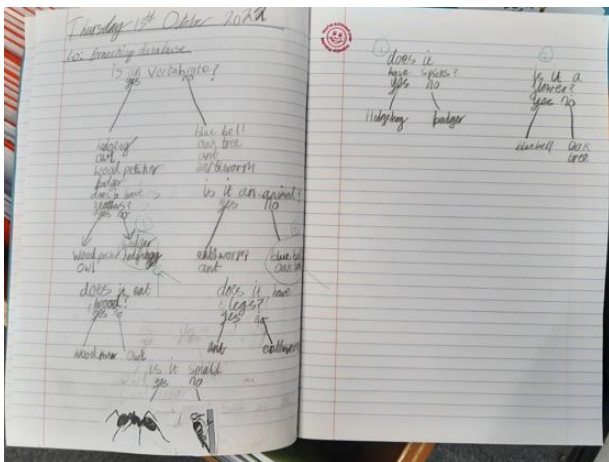 Thursday 13th October 2022
Lo: branching database
is an vertabrate?
yes no
hedgeog
owl
wood petcher
badger
does it have
feathers?
yes no
blue bell
oak tree
ant
earthworm
is it an animal?
yes no
1
Wood petcher
owl
badger
hedgehog
earthworm
ant
2
blue bell
oak tree
does it eat
wood?
yes no
does it have
legs?
yes no
owl
ant
earthworm
is it small
yes no
1
does it
have spicks?
yes no
Hedgehog badger
2
is it a
flower?
yes no
bluebell oak
tree